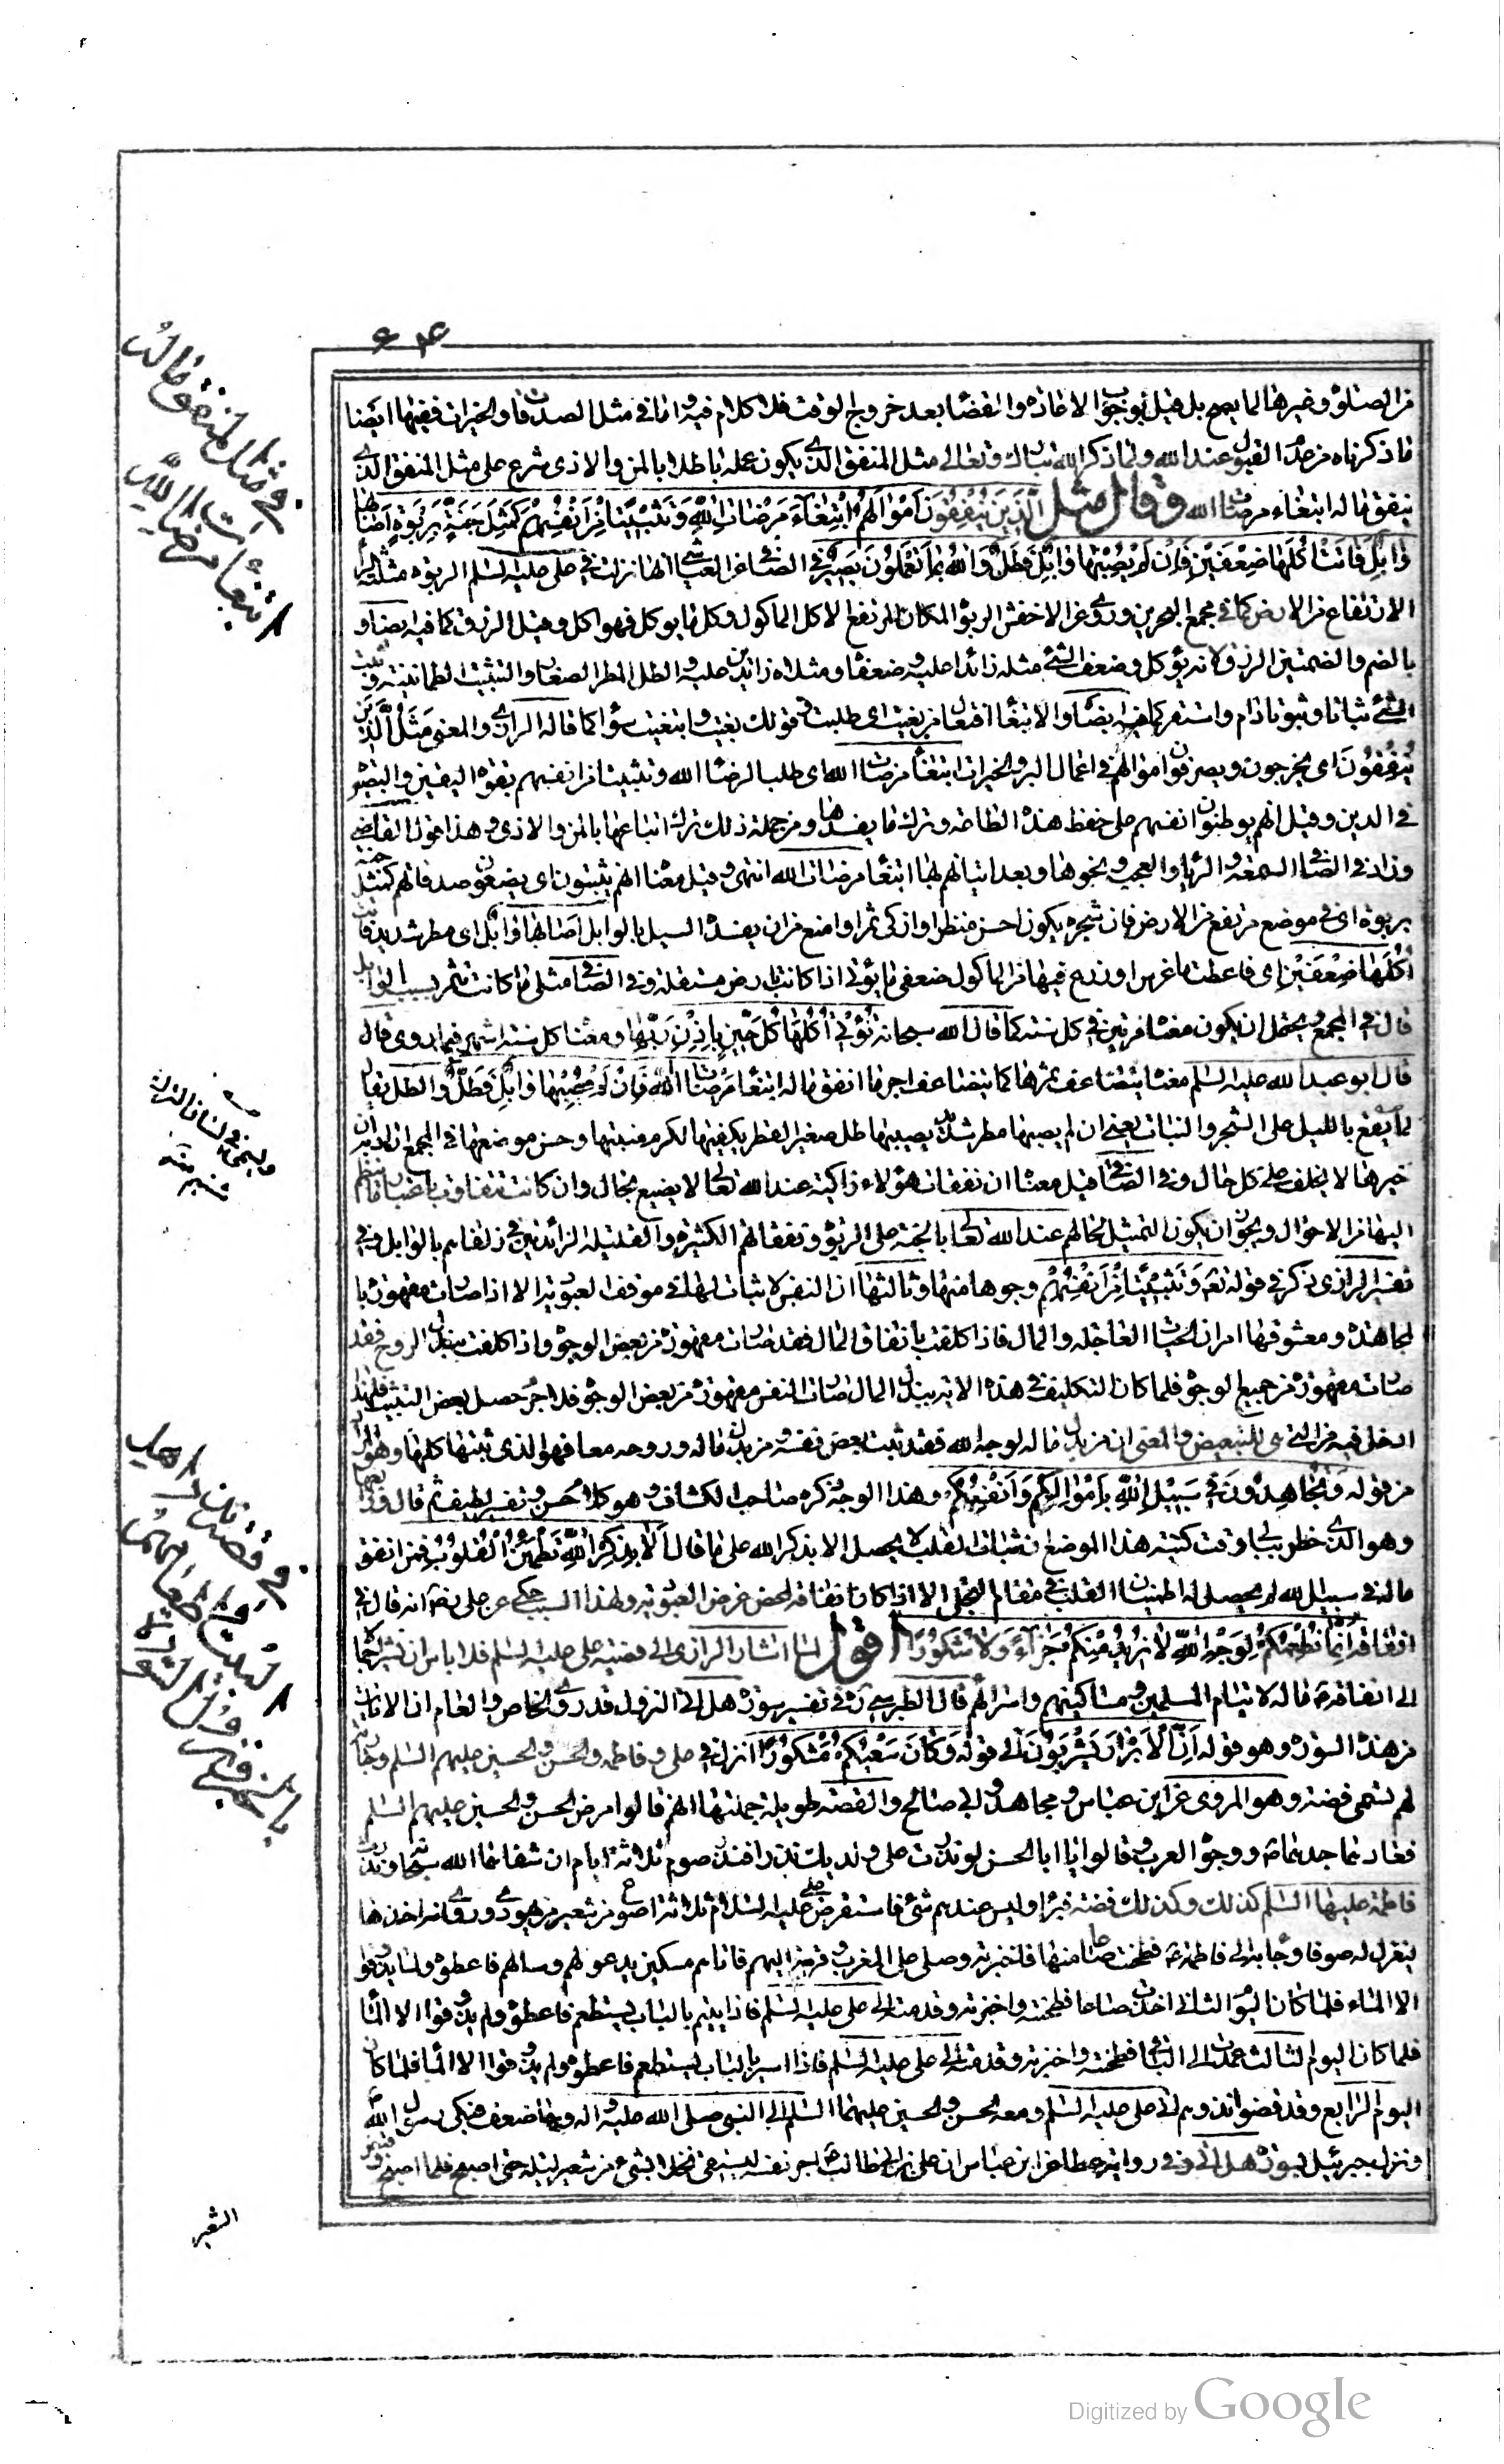 ٦٠٤
من الصلوة وغيرها لما يصح بل قيل بوجوب الاعادة والقضاء بعد خروج الوقت فلا كلام فيه واما في مثل الصدقات والخيرات ففيها ايضا
ما ذكرناه من عدم القبول عند الله ولما ذكر الله تبارك وتعالى مثل المنفق الذي يكون عمله باطلا بالمن والاذى شرع على مثل المنفق الذي
ينفق ماله ابتغاء مرضات الله وقال مثل الَّذِينَ يُنْفِقُونَ أَمْوالَهُمُ ابْتِغاءَ مَرْضاتِ اللّهِ وَتَثْبِيتًا مِنْ أَنْفُسِهِمْ كَمَثَلِ جَنَّةٍ بِرَبْوَةٍ أَصابَها
وابِلٌ فَآتَتْ أُكُلَها ضِعْفَيْنِ فَإِنْ لَمْ يُصِبْها وابِلٌ فَطَلٌّ وَاللهُ بِما تَعْمَلُونَ بَصِيرٌ في الصافي عن العياشي انها نزلت في علي عليه السلم الربوة مثلثة الراء
الارتفاع من الارض كما في مجمع البحرين وروي عن الاخفش الربو المكان المرتفع الاكل الماكول وكلما يوكل فهو اكل وقيل الرزق كما فيه ايضا و
بالضم والضمتين الرزق لانه يؤكل وضعف الشيء مثله زائدا عليه وضعفاه مثلاه زائدين عليه والطل المطر الصغار والتثبيت لطمانينة وثبت
الشيء ثباتا وثبوتا دام واستقر كما فيه ايضا والابتغاء افتعال من بغيت اي طلبت قولك بغيت وابتغيت سواء كما قاله الرازي والمعنى مَثَلُ الَّذِينَ
يُنْفِقُونَ اي يخرجون ويصرفون اموالهم في اعمال البر والخيرات ابتغاء مرضات الله اي طلبا لرضاء الله وتثبيتا من انفسهم بقوة اليقين والبصيرة
في الدين وقيل انهم يوطنون انفسهم على حفظ هذه الطاعة وترك ما يفسدها ومن جملة ذلك ترك اتباعها بالمن والاذى وهذا قول القاضي
وزاد في الصافي السمعة والرياء والعجب ونحوها وبعد اتيانهم لها ابتغاء مرضات الله انتهى وقيل معناه انهم يثبتون اي يضعون صدقاتهم كمثل جنة
بربوة اي في موضع مرتفع من الارض فان شجره يكون احسن منظرا وازكى ثمرا وامنع من ان يفسده السيل بالوابل اصابها وابل اي مطر شديد فاتت
أُكُلَها ضِعْفَيْنِ اي فاعطت ما غرس او زرع فيها من الماكول ضعفي ما يؤتى اذا كانت بارض مستفلة وفي الصافي مثلي ما كانت تثمر بسبب الوابل
قال في المجمع ويحتمل ان يكون معناه مرتين في كل سنة كما قال الله سبحانه تُؤْتِي أُكُلَها كُلَّ حِينٍ بِإِذْنِ رَبِّها ومعناه كل ستة اشهر فيما روي قال
قال ابو عبد الله عليه السلم معناه يتضاعف ثمرها كما يتضاعف اجر ما انفق ماله ابتغاء مَرْضات الله فَإِنْ لَمْ يُصِبْها وابِلٌ فَطَلٌّ والطل يقال
لما يقع بالليل على الشجر والنبات يعني ان لم يصبها مطر شديد يصيبها طل صغير القطر يكفيها لكرم منبتها وحسن موضعها في المجمع اراد به ان
خيرها لا يخلف على كل حال وفي الصافي قيل معناه ان نفقات هؤلاء زاكية عند الله تعالى لا يضيع بحال وان كانت تتفاوت باعتبار ما ينضم
اليها من الاحوال ويجوز ان يكون التمثيل لحالهم عند الله تعالى بالجنة على الربوة ونفقاتهم الكثيرة والقليلة الزائدتين في زلفاهم بالوابل وفي
تفسير الرازي ذكر في قوله تعالى وَتَثْبِيتًا مِنْ أَنْفُسِهِمْ وجوها منها وثالثها ان النفس لا ثبات لها في موقف العبودية الا اذا صارت مقهورة با
لمجاهدة ومعشوقها امران الحياة العاجلة والمال فاذا كلفت بانفاق المال فقد صارت مقهورة من بعض الوجوه واذا كلفت ببذل الروح فقد
صارت مقهورة من جميع الوجوه فلما كان التكليف في هذه الاية ببذل المال صارت النفس مقهورة من بعض الوجوه فلا جرم حصل بعض التثبيت فلهذا
ادخل فيه من التي هي للتبعيض والمعنى ان من بذل ماله لوجه الله فقد ثبت بعض نفسه ومن بذل ماله وروحه معا فهو الذي ثبتها كلها وهو المراد
من قوله وَتُجاهِدُونَ فِي سَبِيلِ اللّهِ بِأَمْوالِكُمْ وَأَنْفُسِكُمْ وهذا الوجه ذكره صاحب الكشاف وهو كلام حسن وتفسير لطيف ثم قال ورابعها
وهو الذي خطر ببالي وقت كتبة هذا الموضع ان ثبات القلب لا يحصل الا بذكر الله على ما قال أَلا بِذِكْرِ اللّهِ تَطْمَئِنُّ الْقُلُوبُ فمن انفق
ماله في سبيل الله لم يحصل له اطمينان القلب في مقام التجلي الا اذا كان انفاقه لمحض غرض العبودية ولهذا السبب حكي عن علي رض انه قال في
انفاقه إِنَّما نُطْعِمُكُمْ لِوَجْهِ اللّهِ لا نُرِيدُ مِنْكُمْ جَزاءً وَلا شُكُورًا اقول لما اشار الرازي الى قضية علي عليه السلم فلا باس ان نشير اجمالا
الى انفاقه ماله لايتام المسلمين ومساكينهم واسرائهم قال الطبرسي ره في تفسير سورة هل اتى النزول قد روى الخاص والعام ان الايات
من هذه السورة وهو قوله أَنَّ الْأَبْرارَ يَشْرَبُونَ الى قوله وَكانَ سَعْيُكُمْ مَشْكُورًا انزلت في علي وفاطمة والحسن والحسين عليهم السلم وجارية
لهم تسمى فضة وهو المروي عن ابن عباس ومجاهد وابي صالح والقصة طويلة جملتها انهم قالوا مرض الحسن والحسين عليهم السلم
فعادهما جدهما ص ووجوه العرب وقالوا يا ابا الحسن لو نذرت على ولديك نذرا فنذر صوم ثلاثة ايام ان شفاهما الله سبحانه ونذرت
فاطمة عليها السلم كذلك وكذلك فضة فبرءا وليس عندهم شيء فاستقرض علي عليه السلام ثلاثة اصوع من شعير من يهودي وروي انه اخذها
ليغزل له صوفا وجاء به الى فاطمة ع فطحنت صاعا منها فاختبزته وصلى علي المغرب وقربته اليهم فاتاهم مسكين يدعو لهم وسالهم فاعطوه ولم يذوقوا
الا الماء فلما كان اليوم الثاني اخذت صاعا فطحنته واختبزته وقدمته الى علي عليه السلم فاذا يتيم بالباب يستطعم فاعطوه ولم يذوقوا الا الماء
فلما كان اليوم الثالث عمدت الى الباقي فطحنته واختبزته وقدمته الى علي عليه السلم فاذا اسير بالباب يستطعم فاعطوه ولم يذوقوا الا الماء فلما كان
اليوم الرابع وقد قضوا نذورهم اتى علي عليه السلم ومعه الحسن والحسين عليهما السلم الى النبي صلى الله عليه واله وبهما ضعف فبكى رسول الله ص
ونزل جبرئيل بسورة هل اتى وفي رواية عطا عن ابن عباس ان علي بن ابي طالب ع اجر نفسه ليستقي نخلا بشيء من شعير ليلة حتى اصبح فلما اصبح وقبض
في مثل المنفق ماله
ابتغاء مرضات الله
في قصة نذر اهل
البيت واطعامهم
الشعير
Digitized by Google